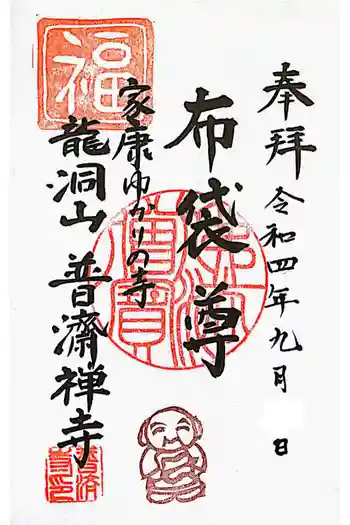 奉拝 令和四年九月 日
布袋尊
家康ゆかりの寺
龍洞山 普濟禅寺
福